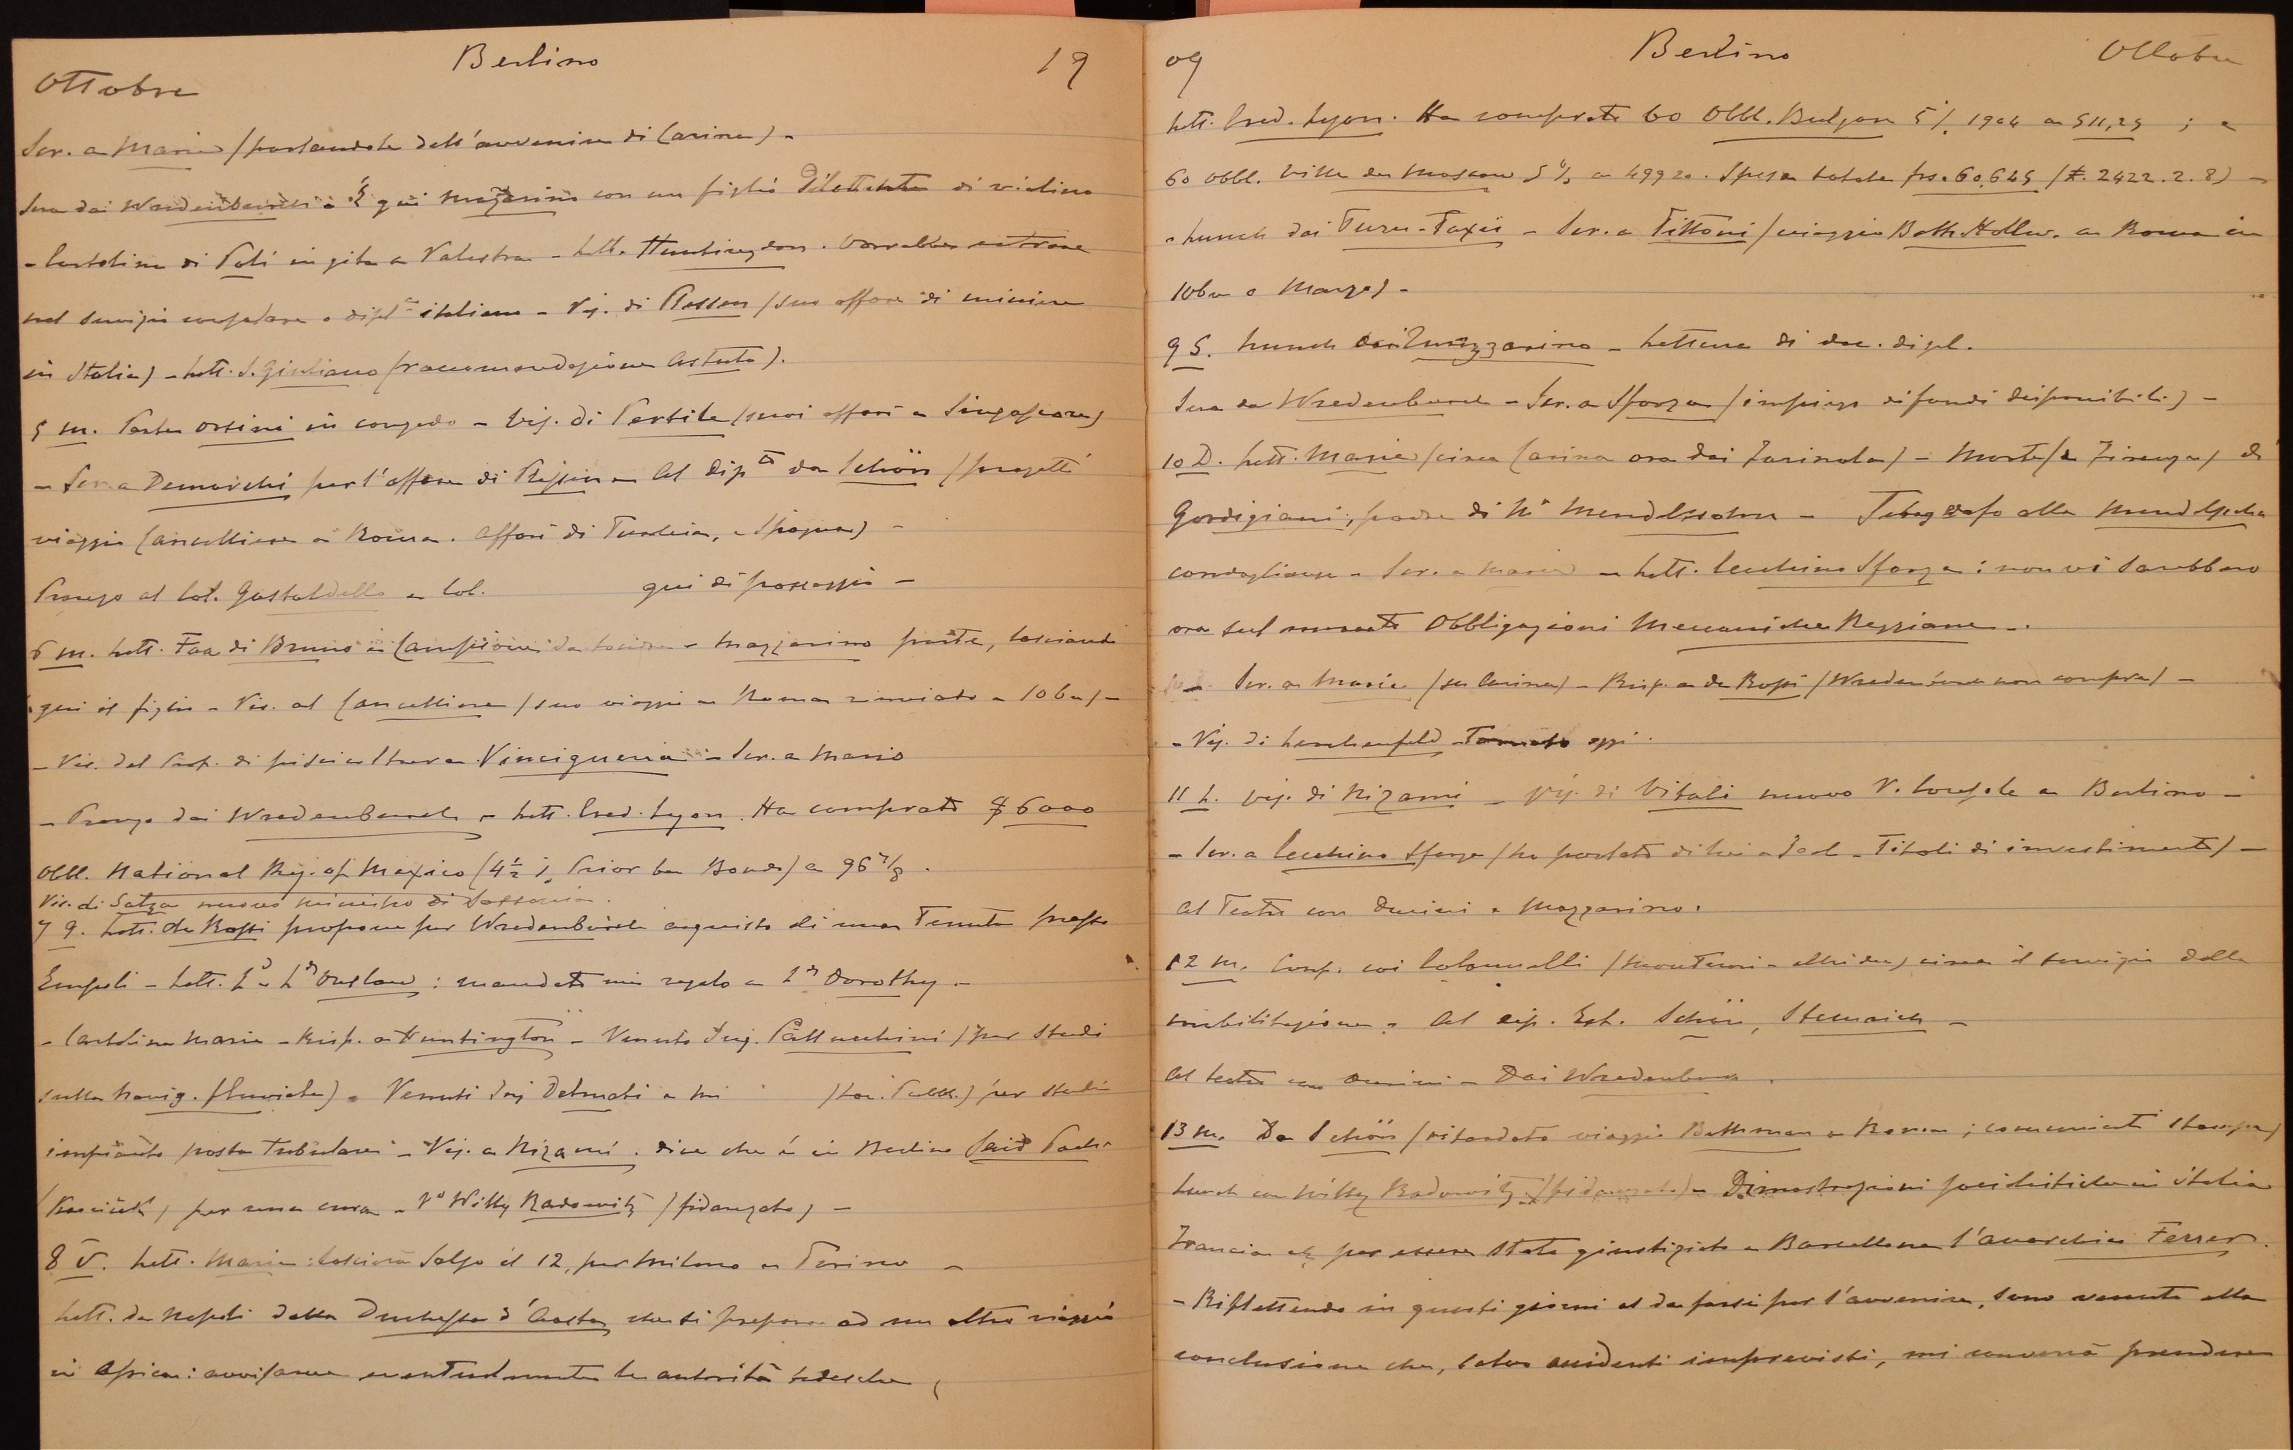 Ottobre Berlino 19
Scr. a Maria (parlandole dell'avvenire di Carina) -
Sera dai Wredenburch - È qui Mazzarino con un figlio dilettante di violino
- Cartolina di Poli in gita a Valestra - Lett. Huntington. Vorrebbe entrare
nel servizio consolare o dipl. italiano - Vis. di Plessen (suo affare di miniere
in Italia) - Lett. S. Giuliano (raccomandazione Astuto).
5 M. Parte Orsini in congedo - Vis. di Pertile (suoi affari a Singapore)
- Scr. a Demarchi per l'affare di Plessen - Al Dip.to da Schön (progetti
viaggio Cancelliere a Roma. Affari di Turchia, e Spagna) -
Pranzo al Col. Gastaldello e Col. qui di passaggio -
6 M. Lett. Faa di Bruno e Campioni da Londra - Mazzarino parte, lasciando
qui il figlio - Vis. al Cancelliere (suo viaggio a Roma rinviato a 10bre) -
- Vis. del Prof. di piscicultura Vinciguerra - Scr. a Mario
- Pranzo dai Wredenburch - Lett. Cred. Lyon. Ha comprato $ 6000
Obbl. National Ry. of Mexico (4½ % Prior Bonds) a 96 7/8.
Vis. di Salza nuovo ministro di Sassonia.
7 G. Lett. de Rossi propone per Wredenburch acquisto di una Tenuta presso
Empoli - Lett. Ld e Ly Onslow: mandato mio regalo a Ly Dorothy -
- Cartolina Maria - Risp. a Huntington - Venuto Ing. Pallucchini (per studi
sulla Navig. fluviale) - Venuti Ing. Delmati e (Lav. Pubbl.) per studi
impianto posta tubulare - Vis. a Nizami. Dice che è in Berlino Said Pacha
(Kurciuk) per una cura - Willy Radowitz (fidanzato) -
8 V. Lett. Maria: lascierà Salso il 12, per Milano e Torino -
Lett. da Napoli della Duchessa d'Aosta che si prepara ad un altro viaggio
in Africa: avvisarne eventualmente le autorità tedesche
09 Berlino Ottobre
Lett. Cred. Lyon. Ha comprato 60 Obbl. Bulgare 5 % 1904 a 511,25 ; e
60 Obbl. Ville de Moscou 5 % a 499 20. Spesa totale frs. 60,645 (£. 2422.2.8) -
- Lunch dai Turn-Taxis - Scr. a Tittoni (viaggio Beth. Hollw. a Roma in
10bre o Marzo) -
9 S. Lunch Mazzarino - Lettura di doc. dipl.
Sera da Wredenburch - Scr. a Sforza (impiego di fondi disponibili) -
10 D. Lett. Maria (circa Carina ora dai Farinola) - Morto (a Firenze) di
Gordigiani, padre di Mendelssohn - Telegrafo alla Mendelssohn
condoglianze - Scr. a Maria - Lett. Cecchino Sforza: non vi sarebbero
ora sul mercato Obbligazioni Meccaniche Reggiane -.
- Scr. a Maria (su Carina) - Risp. a de Rossi (Wredenburch non compra) -
- Vis. di Lerchenfeld tornato oggi.
11 L. Vis. di Nizami - Vis. di Vitali nuovo V. Console a Berlino -
- Scr. a Cecchino Sforza (ho parlato di lui a Joel - Titoli di investimento) -
Al Teatro con Durini e Mazzarino.
12 M. Conf. coi Colonnelli (Montuori e) circa il servizio della
mobilitazione - Al Dip. Est. Schön, Stemrich -
Al teatro con Durini - Dai Wredenburch.
13 M. Da Schön (ritardato viaggio Bethmann a Roma ; comunicati stampa)
Lunch con Willy Radowitz (fidanzato) - Dimostrazioni socialistiche in Italia
Francia etc per essere stato giustiziato a Barcellona l'anarchico Ferrer.
- Riflettendo in questi giorni al da farsi per l'avvenire, sono venuto alla
conclusione che, salvo accidenti imprevisti, mi converrà prendere